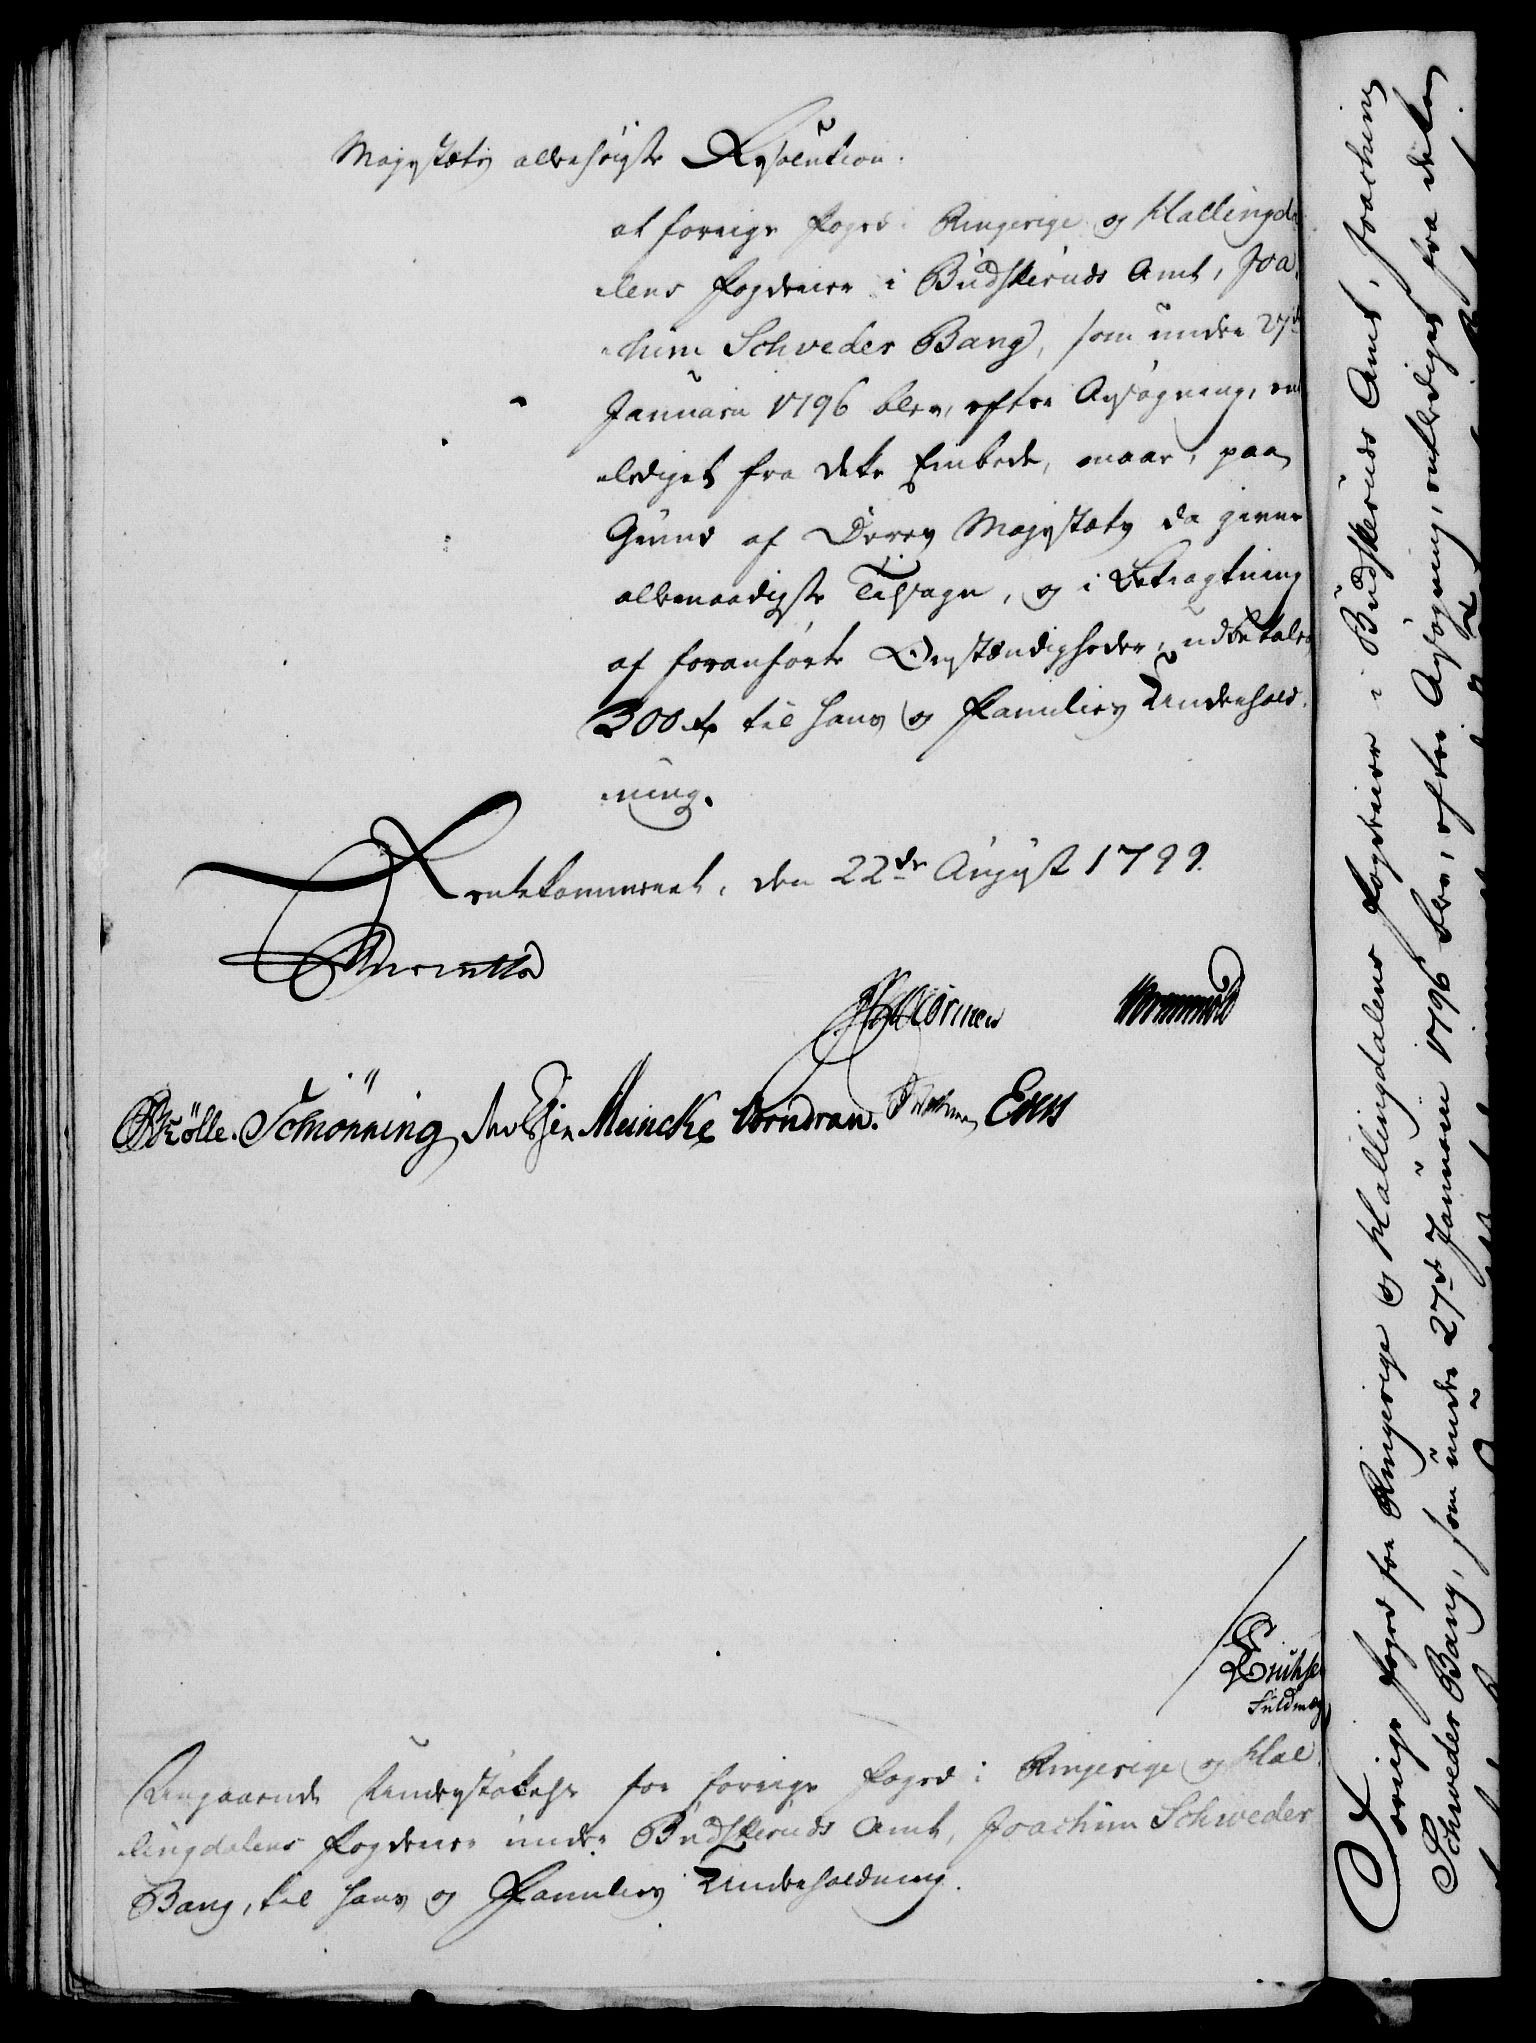 Majestæts allerhøieste Resolution:
at forrige Foged i Ringerige og Hallingda-
lens Fogderier i Budskeruds Amt, Joa-
chim Schweder Bang, som under 27de
Januarii 1796 blev, efter Ansøgning, ent-
lediget fra dette Embede, maae, paa
Grund af Deres Majestæts da givne
allernaadigste Tilsagn, og i Betragtning
af foranførte Omstændigheder, udbetales
300 rd til hans og Families Underhold-
ning.
Rentekammeret, den 22de August 1799.
Schönning Meincke Wendran.
Erichsen
Fuldmæg
Angaaende Understøttelse for forrige Foged i Ringerige og Hal-
lingdalens Fogderier under Budskeruds Amt, Joachim Schweder
Bang, til hans og Families Underholdning.
Forrige Foged for Ringerige og Hallingdalens Fogderier i Budskeruds Amt, Joachim
Schweder Bang, som under 27de Januarii 1796 blev, efter Ansøgning, entlediget fra dette